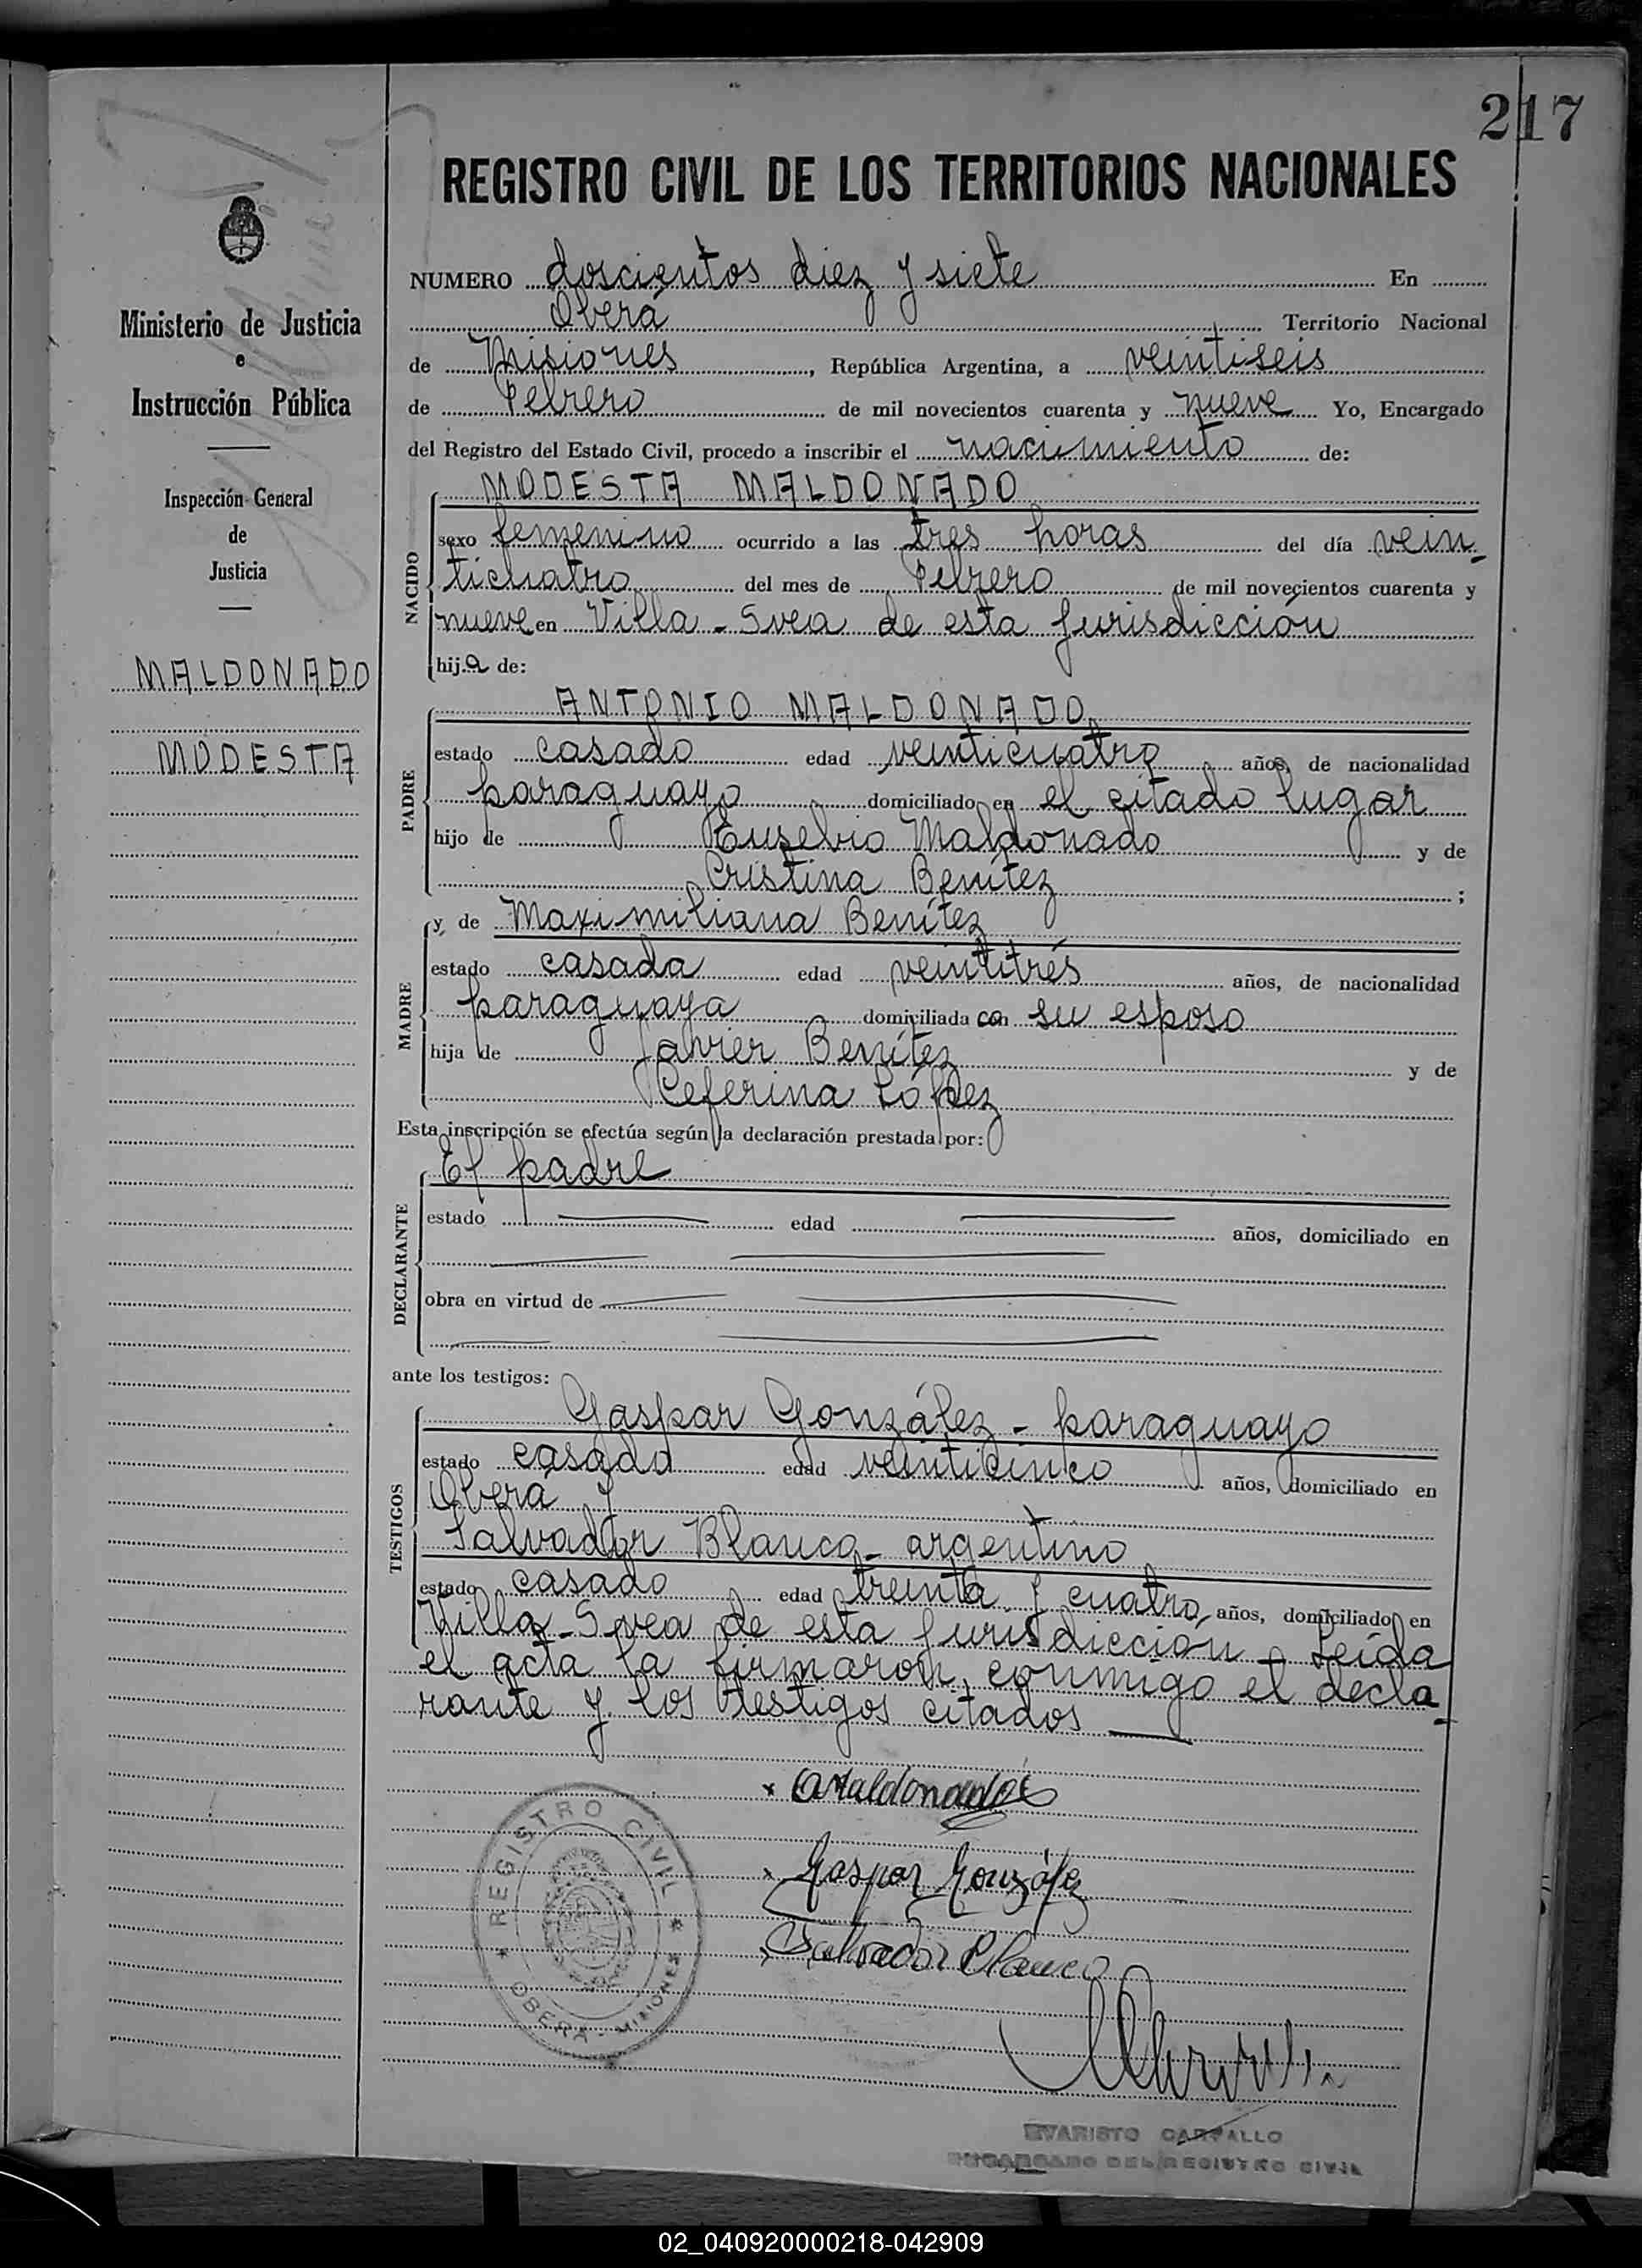 217
REGISTRO CIVIL DE LOS TERRITORIOS NACIONALES
Ministerio de Justicia
e
Instrucción Pública
Inspección General
de
Justicia
MALDONADO
MODESTA
NUMERO doscientos diez y siete En
Oberá Territorio Nacional
de Misiones, República Argentina, a veintiseis
de Febrero de mil novecientos cuarenta y nueve Yo, Encargado
del Registro del Estado Civil, procedo a inscribir el nacimiento de:
NACIDO
MODESTA MALDONADO
sexo femenino ocurrido a las tres horas del día vein-
ticuatro del mes de Febrero de mil novecientos cuarenta y
nueve en Villa-Svea de esta jurisdicción
hija de:
PADRE
ANTONIO MALDONADO
estado casado edad veinticuatro años, de nacionalidad
paraguayo domiciliado en el citado lugar
hijo de Eusebio Maldonado y de
Cristina Benítez ;
MADRE
y de Maximiliana Benítez
estado casada edad veintitrés años, de nacionalidad
paraguaya domiciliada con su esposo
hija de Javier Benítez y de
Ceferina López
Esta inscripción se efectúa según la declaración prestada por:
DECLARANTE
El padre
estado edad años, domiciliado en
obra en virtud de
ante los testigos:
TESTIGOS
Gaspar González - paraguayo
estado casado edad veinticinco años, domiciliado en
Oberá y
Salvador Blanco - argentino
estado casado edad treinta y cuatro años, domiciliado en
Villa-Svea de esta jurisdicción - Leída
el acta la firmaron conmigo el decla-
rante y los testigos citados
x AMaldonado
x Gaspar González
x Salvador Blanco
REGISTRO CIVIL
OBERÁ - MISIONES
EVARISTO CARVALLO
ENCARGADO DEL REGISTRO CIVIL
02_040920000218-042909